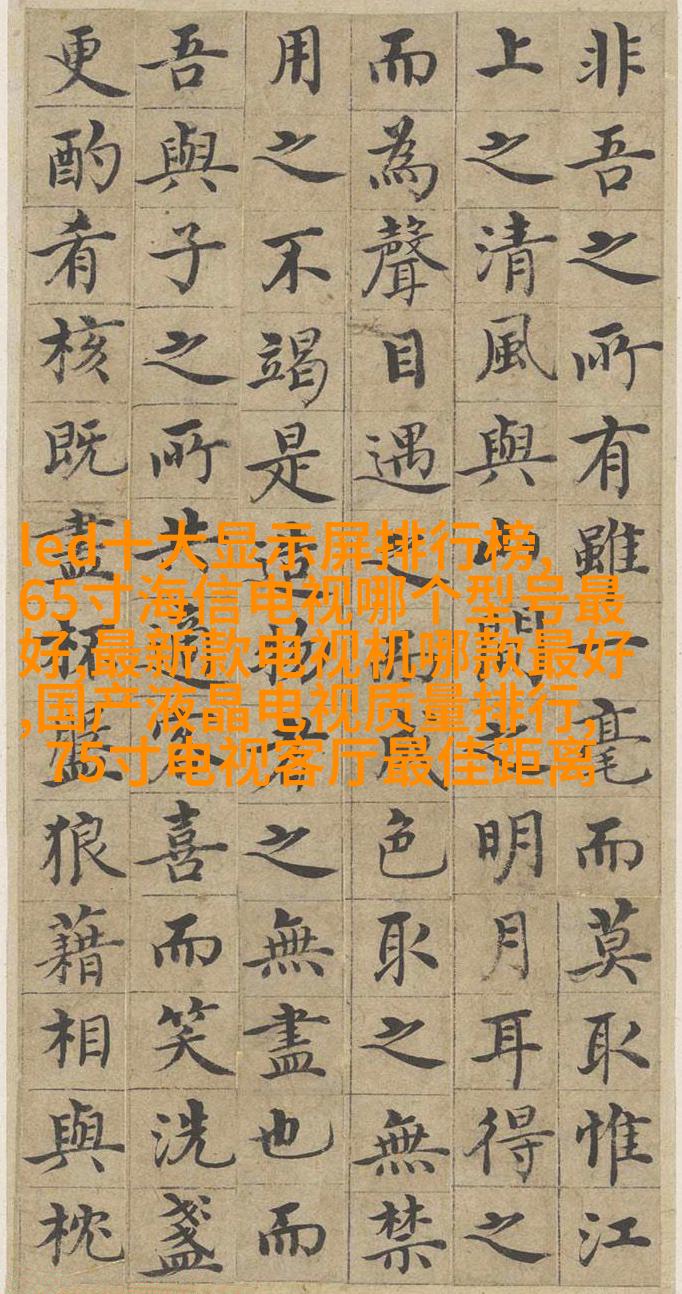 非吾之所有雖一毫而莫取惟江
上之清風與山間之明月耳得之
而為聲目遇之而成色取之無禁
用之不竭是造物者之無盡也而
吾與子之所共適客喜而笑洗盞
更酌肴核既盡杯盤狼藉相與枕
led十大显示屏排行榜,
65寸海信电视哪个型号最
好,最新款电视机哪款最好
,国产液晶电视质量排行,
75寸电视客厅最佳距离